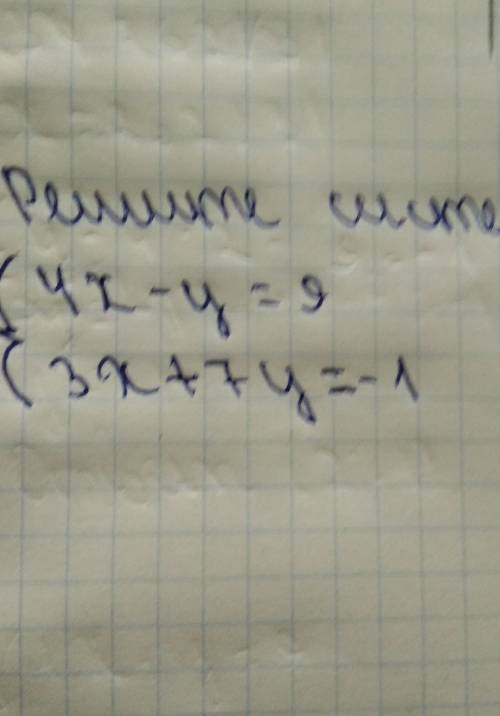 Решите систе
{ 4x - y = 9
{ 3x + 7y = -1